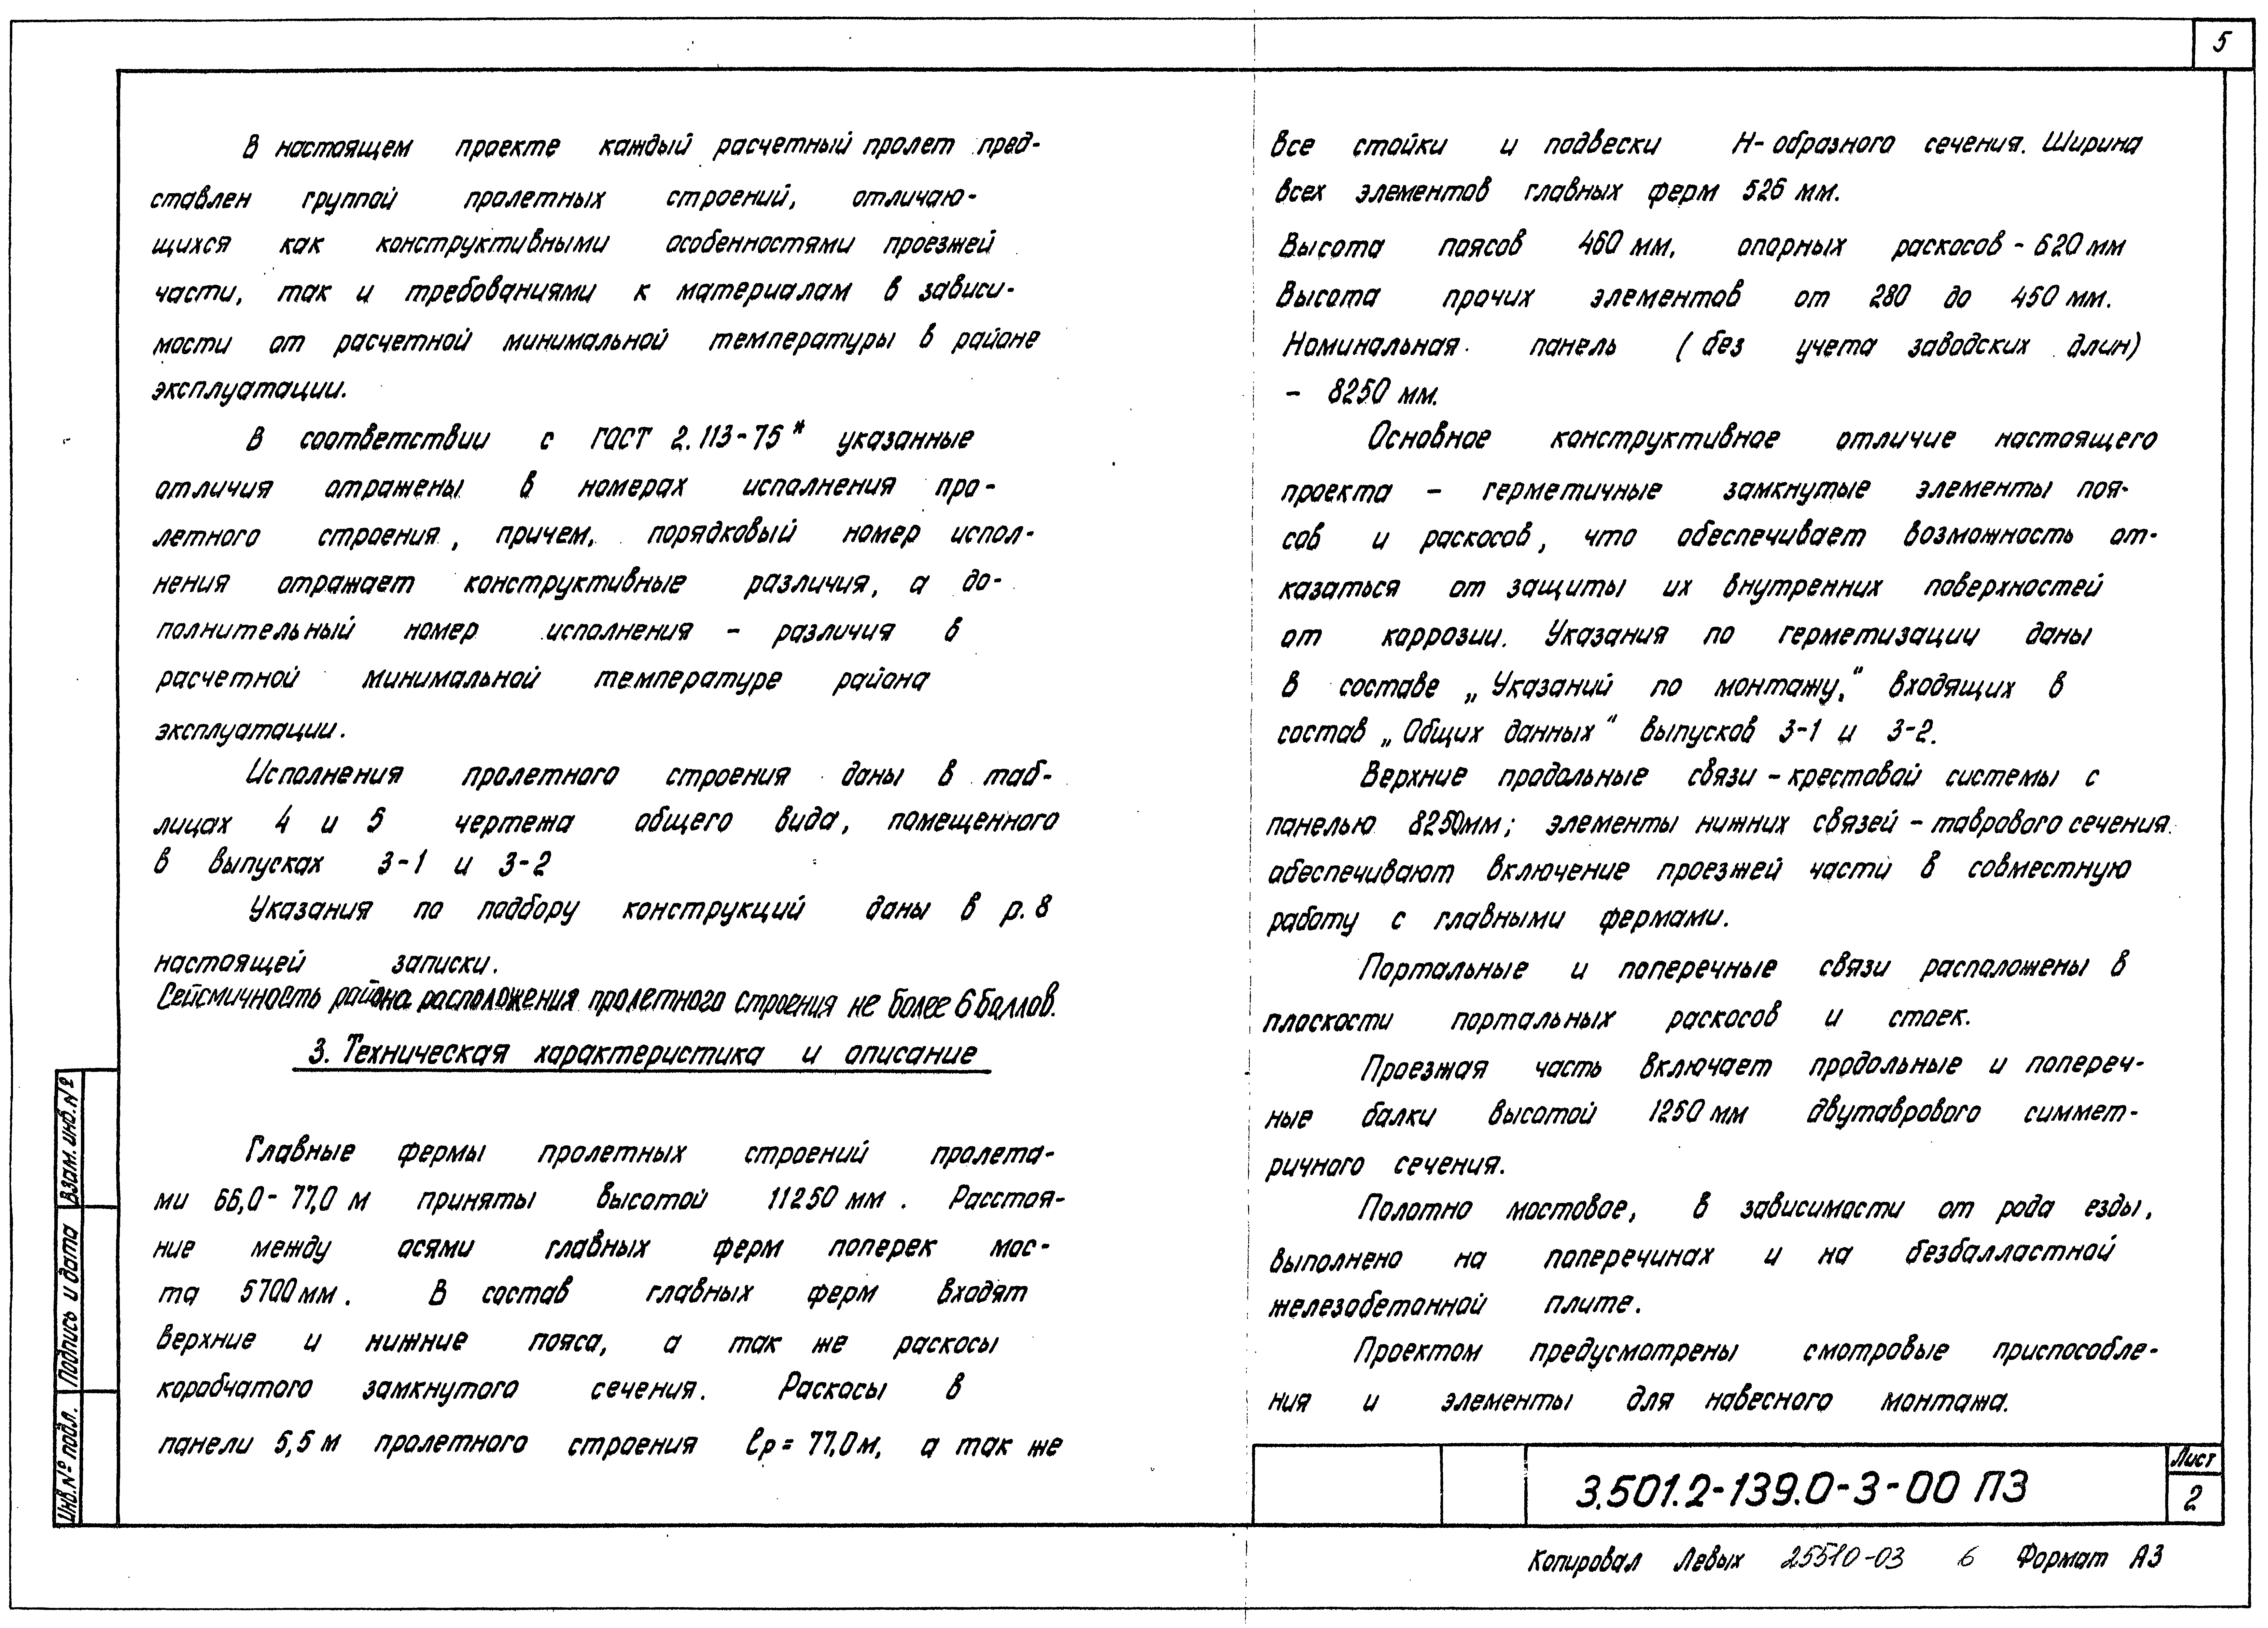 5
В настоящем проекте каждый расчетный пролет пред-
ставлен группой пролетных строений, отличаю-
щихся как конструктивными особенностями проезжей
части, так и требованиями к материалам в зависи-
мости от расчетной минимальной температуры в районе
эксплуатации.
В соответствии с ГОСТ 2.113-75* указанные
отличия отражены в номерах исполнения про-
летного строения, причем, порядковый номер испол-
нения отражает конструктивные различия, а до-
полнительный номер исполнения - различия в
расчетной минимальной температуре района
эксплуатации.
Исполнения пролетного строения даны в таб-
лицах 4 и 5 чертежа общего вида, помещенного
в выпусках 3-1 и 3-2
Указания по подбору конструкций даны в р. 8
настоящей записки.
Сейсмичность района расположения пролетного строения не более 6 баллов.
3. Техническая характеристика и описание
Главные фермы пролетных строений пролета-
ми 66,0- 77,0 м приняты высотой 11250 мм. Расстоя-
ние между осями главных ферм поперек мос-
та 5700 мм. В состав главных ферм входят
верхние и нижние пояса, а так же раскосы
коробчатого замкнутого сечения. Раскосы в
панели 5,5 м пролетного строения ℓр = 77,0 м, а так же
все стойки и подвески Н- образного сечения. Ширина
всех элементов главных ферм 526 мм.
Высота поясов 460 мм, опорных раскосов - 620 мм
Высота прочих элементов от 280 до 450 мм.
Номинальная панель (без учета заводских длин)
- 8250 мм.
Основное конструктивное отличие настоящего
проекта - герметичные замкнутые элементы поя-
сов и раскосов, что обеспечивает возможность от-
казаться от защиты их внутренних поверхностей
от коррозии. Указания по герметизации даны
в составе „Указаний по монтажу," входящих в
состав „Общих данных" выпусков 3-1 и 3-2.
Верхние продольные связи - крестовой системы с
панелью 8250мм; элементы нижних связей - таврового сечения
обеспечивают включение проезжей части в совместную
работу с главными фермами.
Портальные и поперечные связи расположены в
плоскости портальных раскосов и стоек.
Проезжая часть включает продольные и попереч-
ные балки высотой 1250 мм двутаврового симмет-
ричного сечения.
Полотно мостовое, в зависимости от рода езды,
выполнено на поперечинах и на безбалластной
железобетонной плите.
Проектом предусмотрены смотровые приспособле-
ния и элементы для навесного монтажа.
Взам. инв. №
Подпись и дата
Инв. № подл.
3.501.2-139.0-3-00 ПЗ
Лист
2
Копировал Левых 25510-03 6 Формат А3